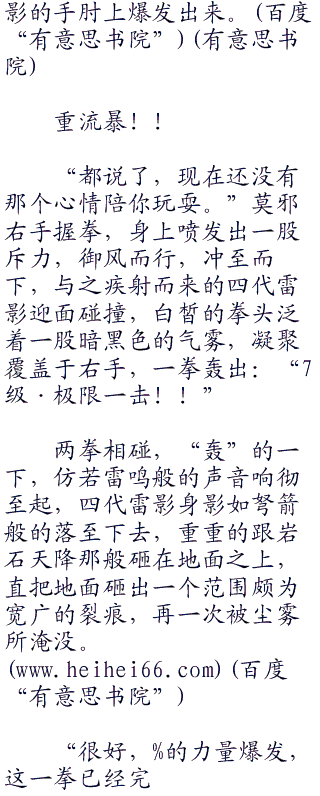 影的手肘上爆发出来。(百度
“有意思书院”)(有意思书
院)
重流暴！！
“都说了，现在还没有
那个心情陪你玩耍。”莫邪
右手握拳，身上喷发出一股
斥力，御风而行，冲至而
下，与之疾射而来的四代雷
影迎面碰撞，白皙的拳头泛
着一股暗黑色的气雾，凝聚
覆盖于右手，一拳轰出：“7
级·极限一击！！”
两拳相碰，“轰”的一
下，仿若雷鸣般的声音响彻
至起，四代雷影身影如弩箭
般的落至下去，重重的跟岩
石天降那般砸在地面之上，
直把地面砸出一个范围颇为
宽广的裂痕，再一次被尘雾
所淹没。
(www.heihei66.com)(百度
“有意思书院”)
“很好，%的力量爆发，
这一拳已经完